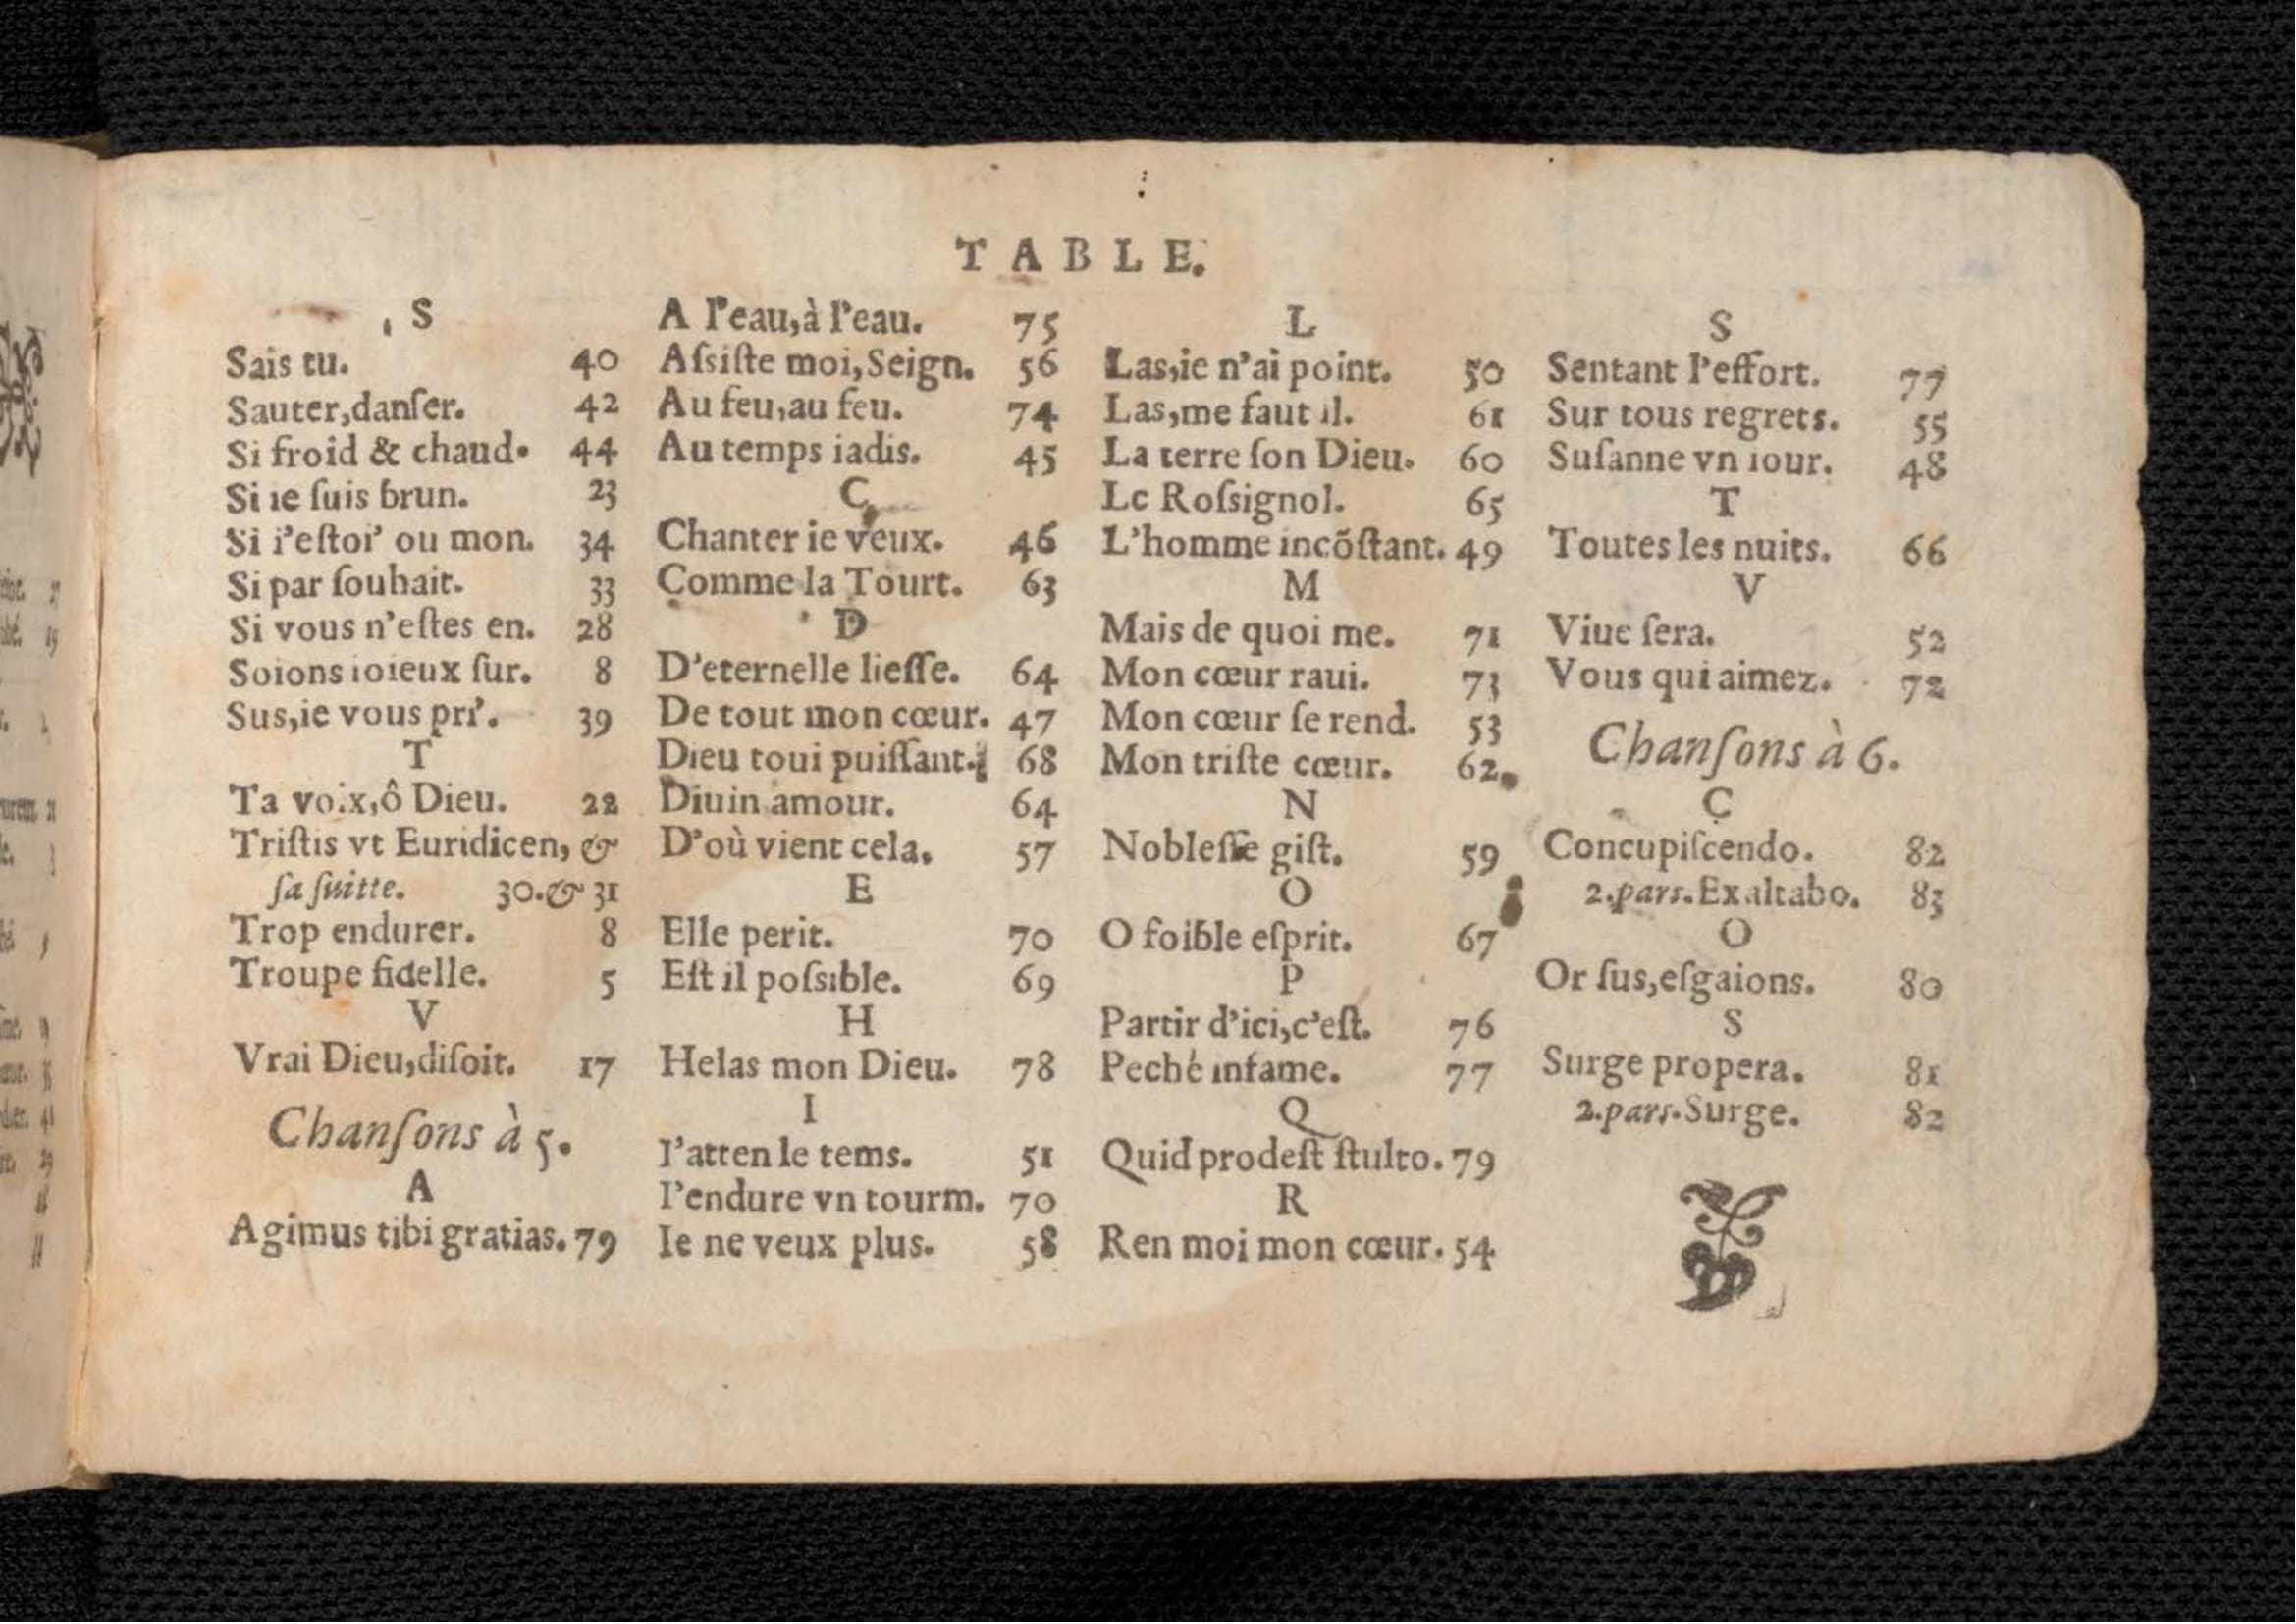 TABLE.
S
Sais tu. 40
Sauter,danſer. 42
Si froid & chaud. 44
Si ie ſuis brun. 23
Si i'eſtoi' ou mon. 34
Si par ſouhait. 33
Si vous n'eſtes en. 28
Soions ioieux ſur. 8
Sus,ie vous pri'. 39
T
Ta voix,ô Dieu. 22
Triſtis vt Euridicen, &
ſa ſuitte. 30.& 31
Trop endurer. 8
Troupe fidelle. 5
V
Vrai Dieu,diſoit. 17
Chanſons à 5.
A
Agimus tibi gratias. 79
A l'eau,à l'eau. 75
Aſsiſte moi,Seign. 56
Au feu,au feu. 74
Au temps iadis. 45
C
Chanter ie veux. 46
Comme la Tourt. 63
D
D'eternelle lieſſe. 64
De tout mon cœur. 47
Dieu toui puiſſant. 68
Diuin amour. 64
D'où vient cela. 57
E
Elle perit. 70
Eſt il poſsible. 69
H
Helas mon Dieu. 78
I
I'atten le tems. 51
I'endure vn tourm. 70
Ie ne veux plus. 58
L
Las,ie n'ai point. 50
Las,me faut il. 61
La terre ſon Dieu. 60
Le Roſsignol. 65
L'homme incõſtant. 49
M
Mais de quoi me. 71
Mon cœur raui. 73
Mon cœur ſe rend. 53
Mon triſte cœur. 62.
N
Nobleſſe giſt. 59
O
O foible eſprit. 67
P
Partir d'ici,c'eſt. 76
Peché infame. 77
Q
Quid prodeſt ſtulto. 79
R
Ren moi mon cœur. 54
S
Sentant l'effort. 77
Sur tous regrets. 55
Suſanne vn iour. 48
T
Toutes les nuits. 66
V
Viue ſera. 52
Vous qui aimez. 72
Chanſons à 6.
C
Concupiſcendo. 82
2.pars.Exaltabo. 83
O
Or ſus,eſgaions. 80
S
Surge propera. 81
2.pars.Surge. 82